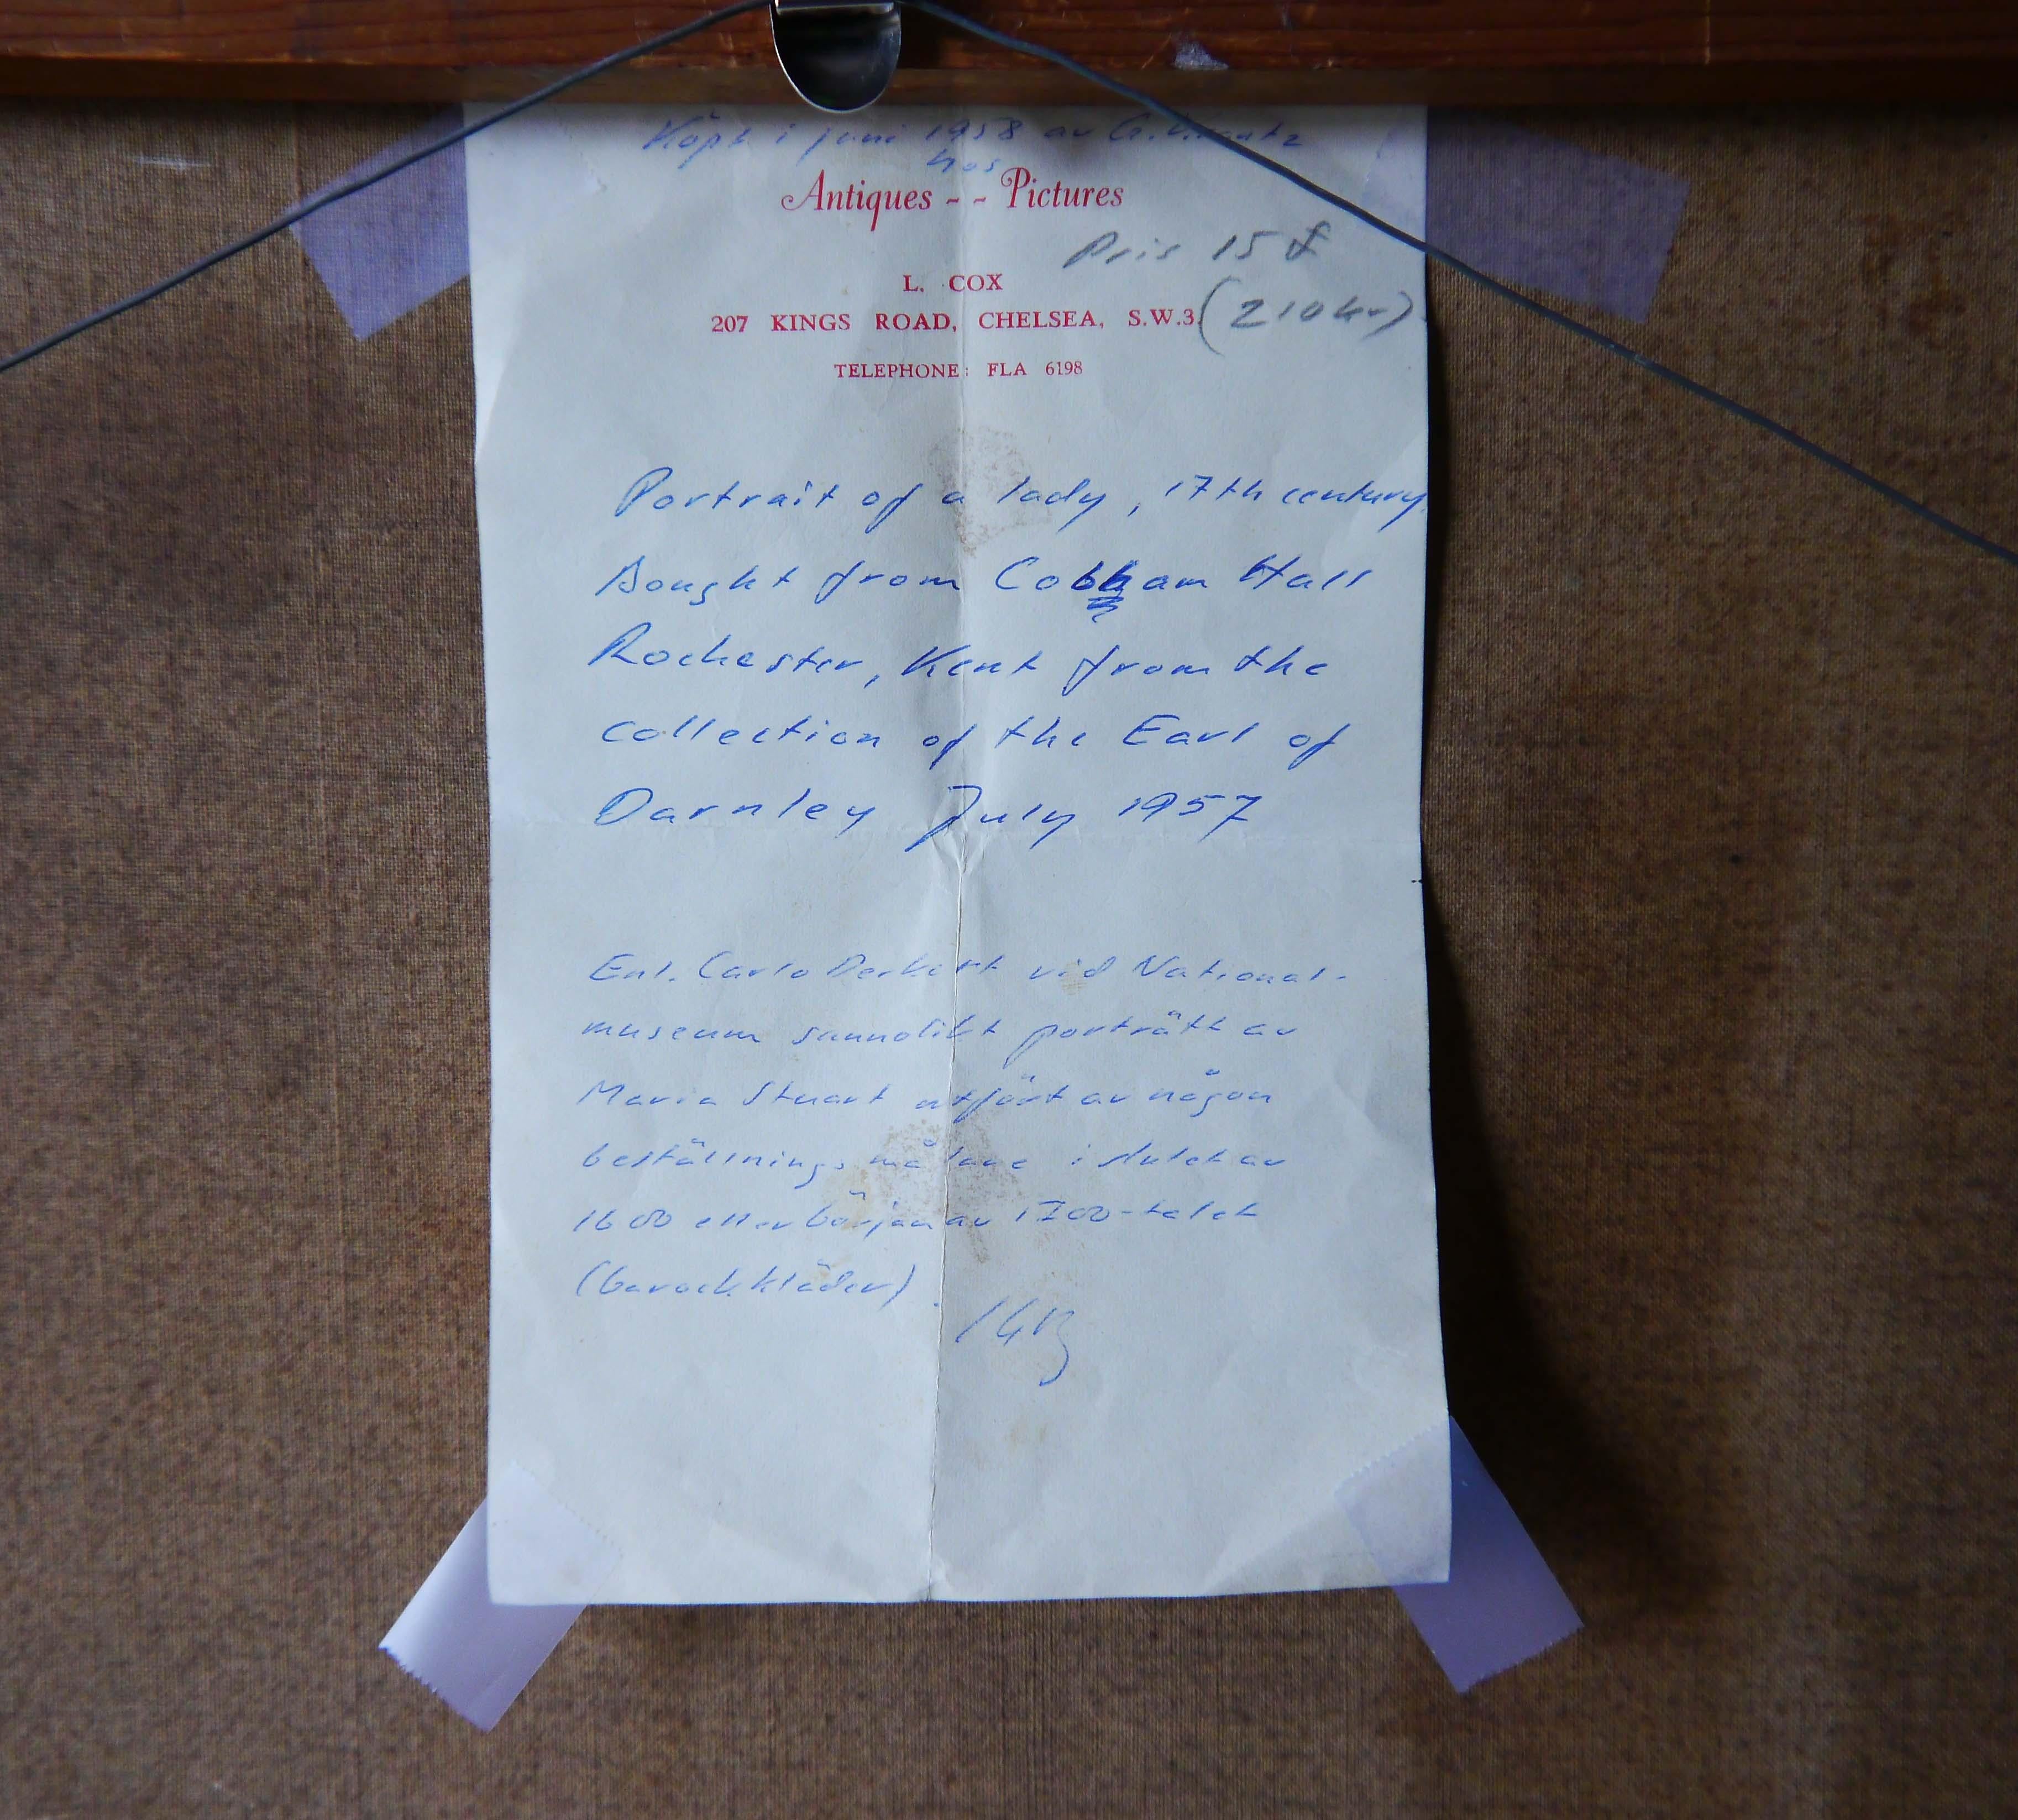 Köpt i juni 1958 av G.
hos
Antiques - - Pictures
Pris 15 £
L. COX
207 KINGS ROAD, CHELSEA, S.W.3.
(210 kr)
TELEPHONE: FLA 6198
Portrait of a lady, 17th century.
Bought from Cobham Hall
Rochester, Kent from the
collection of the Earl of
Darnley July 1957
Enl. Carlo Derkert vid National-
museum sannolikt porträtt av
Maria Stuart utfört av någon
beställningsmålare i slutet av
1600 eller början av 1700-talet
(barockkläder).